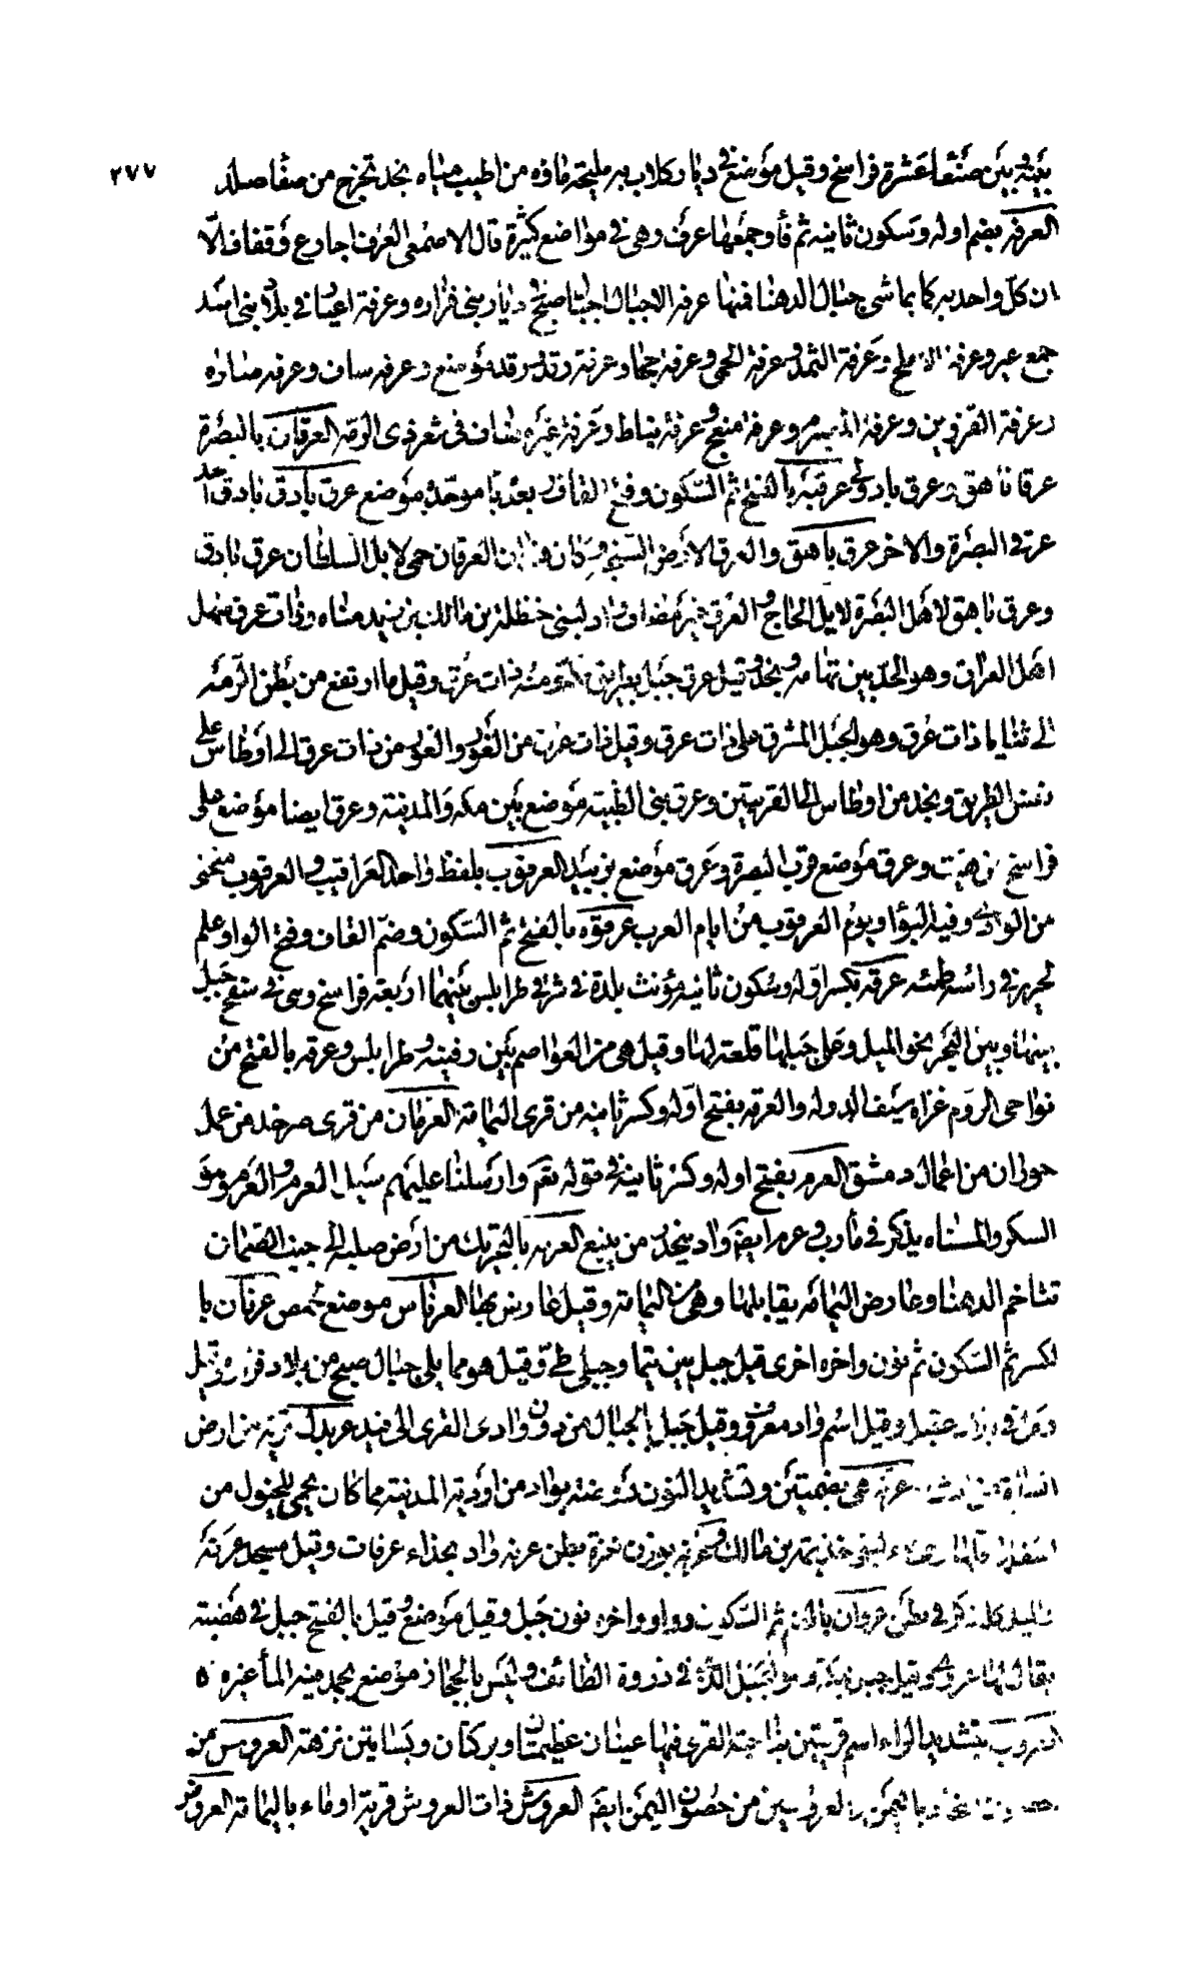 ٢٧٧
بينه بين صنعا عشرة فراسخ وقيل موضع في ديار كلاب به مليحة ماؤه من اطيب مياه نجد تخرج من صفا صلد
العرفة بضم اوله وسكون ثانيه ثم فا وجمعها عرف وهي في مواضع كثيرة قال الاصمعي العرف اجارع وقفاف الا
ان كل واحد بما شي جبال الدهنا فمنها عرفه الاجبال اجبال صبح في ديار بني فزاره وعرفة اعيان في بلاد بني اسد
وعرفة الاملح وعرفة الثمد وعرفة الحمى وعرفة حجا وعرفة رقد موضع وعرفه ساق وعرفه صاره
وعرفة الفروين وعرفة المصرم وعرفة منعج وعرفة نباط وعرفة غير مضاف في شعر ذي الرمه العرقان بالبصرة
عرقا ناهق وعرق بادولى عرقبه بالفتح ثم السكون وفتح القاف بعد با موحدة موضع عرق بادق نادق احد
عرقي البصرة والاخر عرق ناهق والعرق الارض السبخه وكان هذان العرقان حمى لابل السلطان عرق نادق
وعرق ناهق لاهل البصرة لابل الحاج والعرق واد لبني حنظلة بن مالك بن زيد مناه وذات عرق مهل
اهل العراق وهو الحد بين تهامه ونجد وقيل عرق جبل بطريق مكة ومنه ذات عرق وقيل ما ارتفع من بطن الرمه
الى ثنايا ذات عرق وهو الجبل المشرف على ذات عرق وقيل ذات عرق من الغور والغور من ذات عرق الى اوطاس على
نفس الطريق ونجد من اوطاس الى القريتين وعرق بني الظبيه موضع بين مكه والمدينة وعرق ايضا موضع على
فراسخ من هيت وعرق موضع قرب البصرة وعرق موضع بزبيد العرقوب بلفظ واحد العراقيب والعرقوب منحنى
من الوادي وفيه التواء ويوم العرقوب من ايام العرب عرقوه بالفتح ثم السكون وضم القاف وفتح الواو علم
لحزيز في راسه طمئه عرقه بكسر اوله وسكون ثانيه مؤنث بلدة في شرقي طرابلس بينهما اربعة فراسخ وهي في سفح جبل
بينها وبين البحر نحو الميل وعلى جبلها قلعة لها وقيل هي من العواصم بين رفنيه وطرابلس وعرقه بالفتح من
نواحي الروم غزاه سيف الدوله والعرقه بفتح اوله وكسر ثانيه من قرى اليمامة العرمان من قرى صرخد من عمل
حوران من اعمال دمشق العرم بفتح اوله وكسر ثانيه في قوله تعم وارسلنا عليهم سيل العرم والعرم وهو
السكر والمسناه يذكر في مأرب وعرم ايضا واد ينحدر من ينبع العرمه بالتحريك من ارض صلبه الى جنب الصمان
تتاخم الدهنا وعارض اليمامه يقابلها وهي من اليمامة وقيل عارض بها العرناس موضع بحمص عرنان با
لكسر ثم السكون ثم نون واخره اخرى قيل جبل بين تيما وجبلي طي وقيل هو مما يلي جبال صبح من بلاد فزاره وقيل
وقيل اسم واد معروف وقيل جبل بالجبال من دون وادى القرى الى فيد قرية من ارض
عرنه هي بضمتين وتشديد النون بواد من اودية المدينة مما كان يحمى للخيول من
لبني جذيمة بن مالك وعرنه بوزن همزة بطن عرنه واد بحذاء عرفات وقيل مسجد عرنه
والمسيل كله يذكر في بطن عروان بالضم ثم السكون وواو واخره نون جبل وقيل موضع وقيل بالفتح جبل في هضبته
يقال لها عروى وقيل جبل بمكة وهو الجبل الذي في ذروة الطائف وليس بالحجاز موضع يجمد فيه الماء غيره
العروب بتشديد الراء اسم قريتين بناحية القدس فيها عينان عظيمتان وبركتان وبساتين نزهة العروس من
حصون باليمن والعروسين من حصون اليمن ايضا العروش ذات العروش قرية او ماء باليمامة العروض